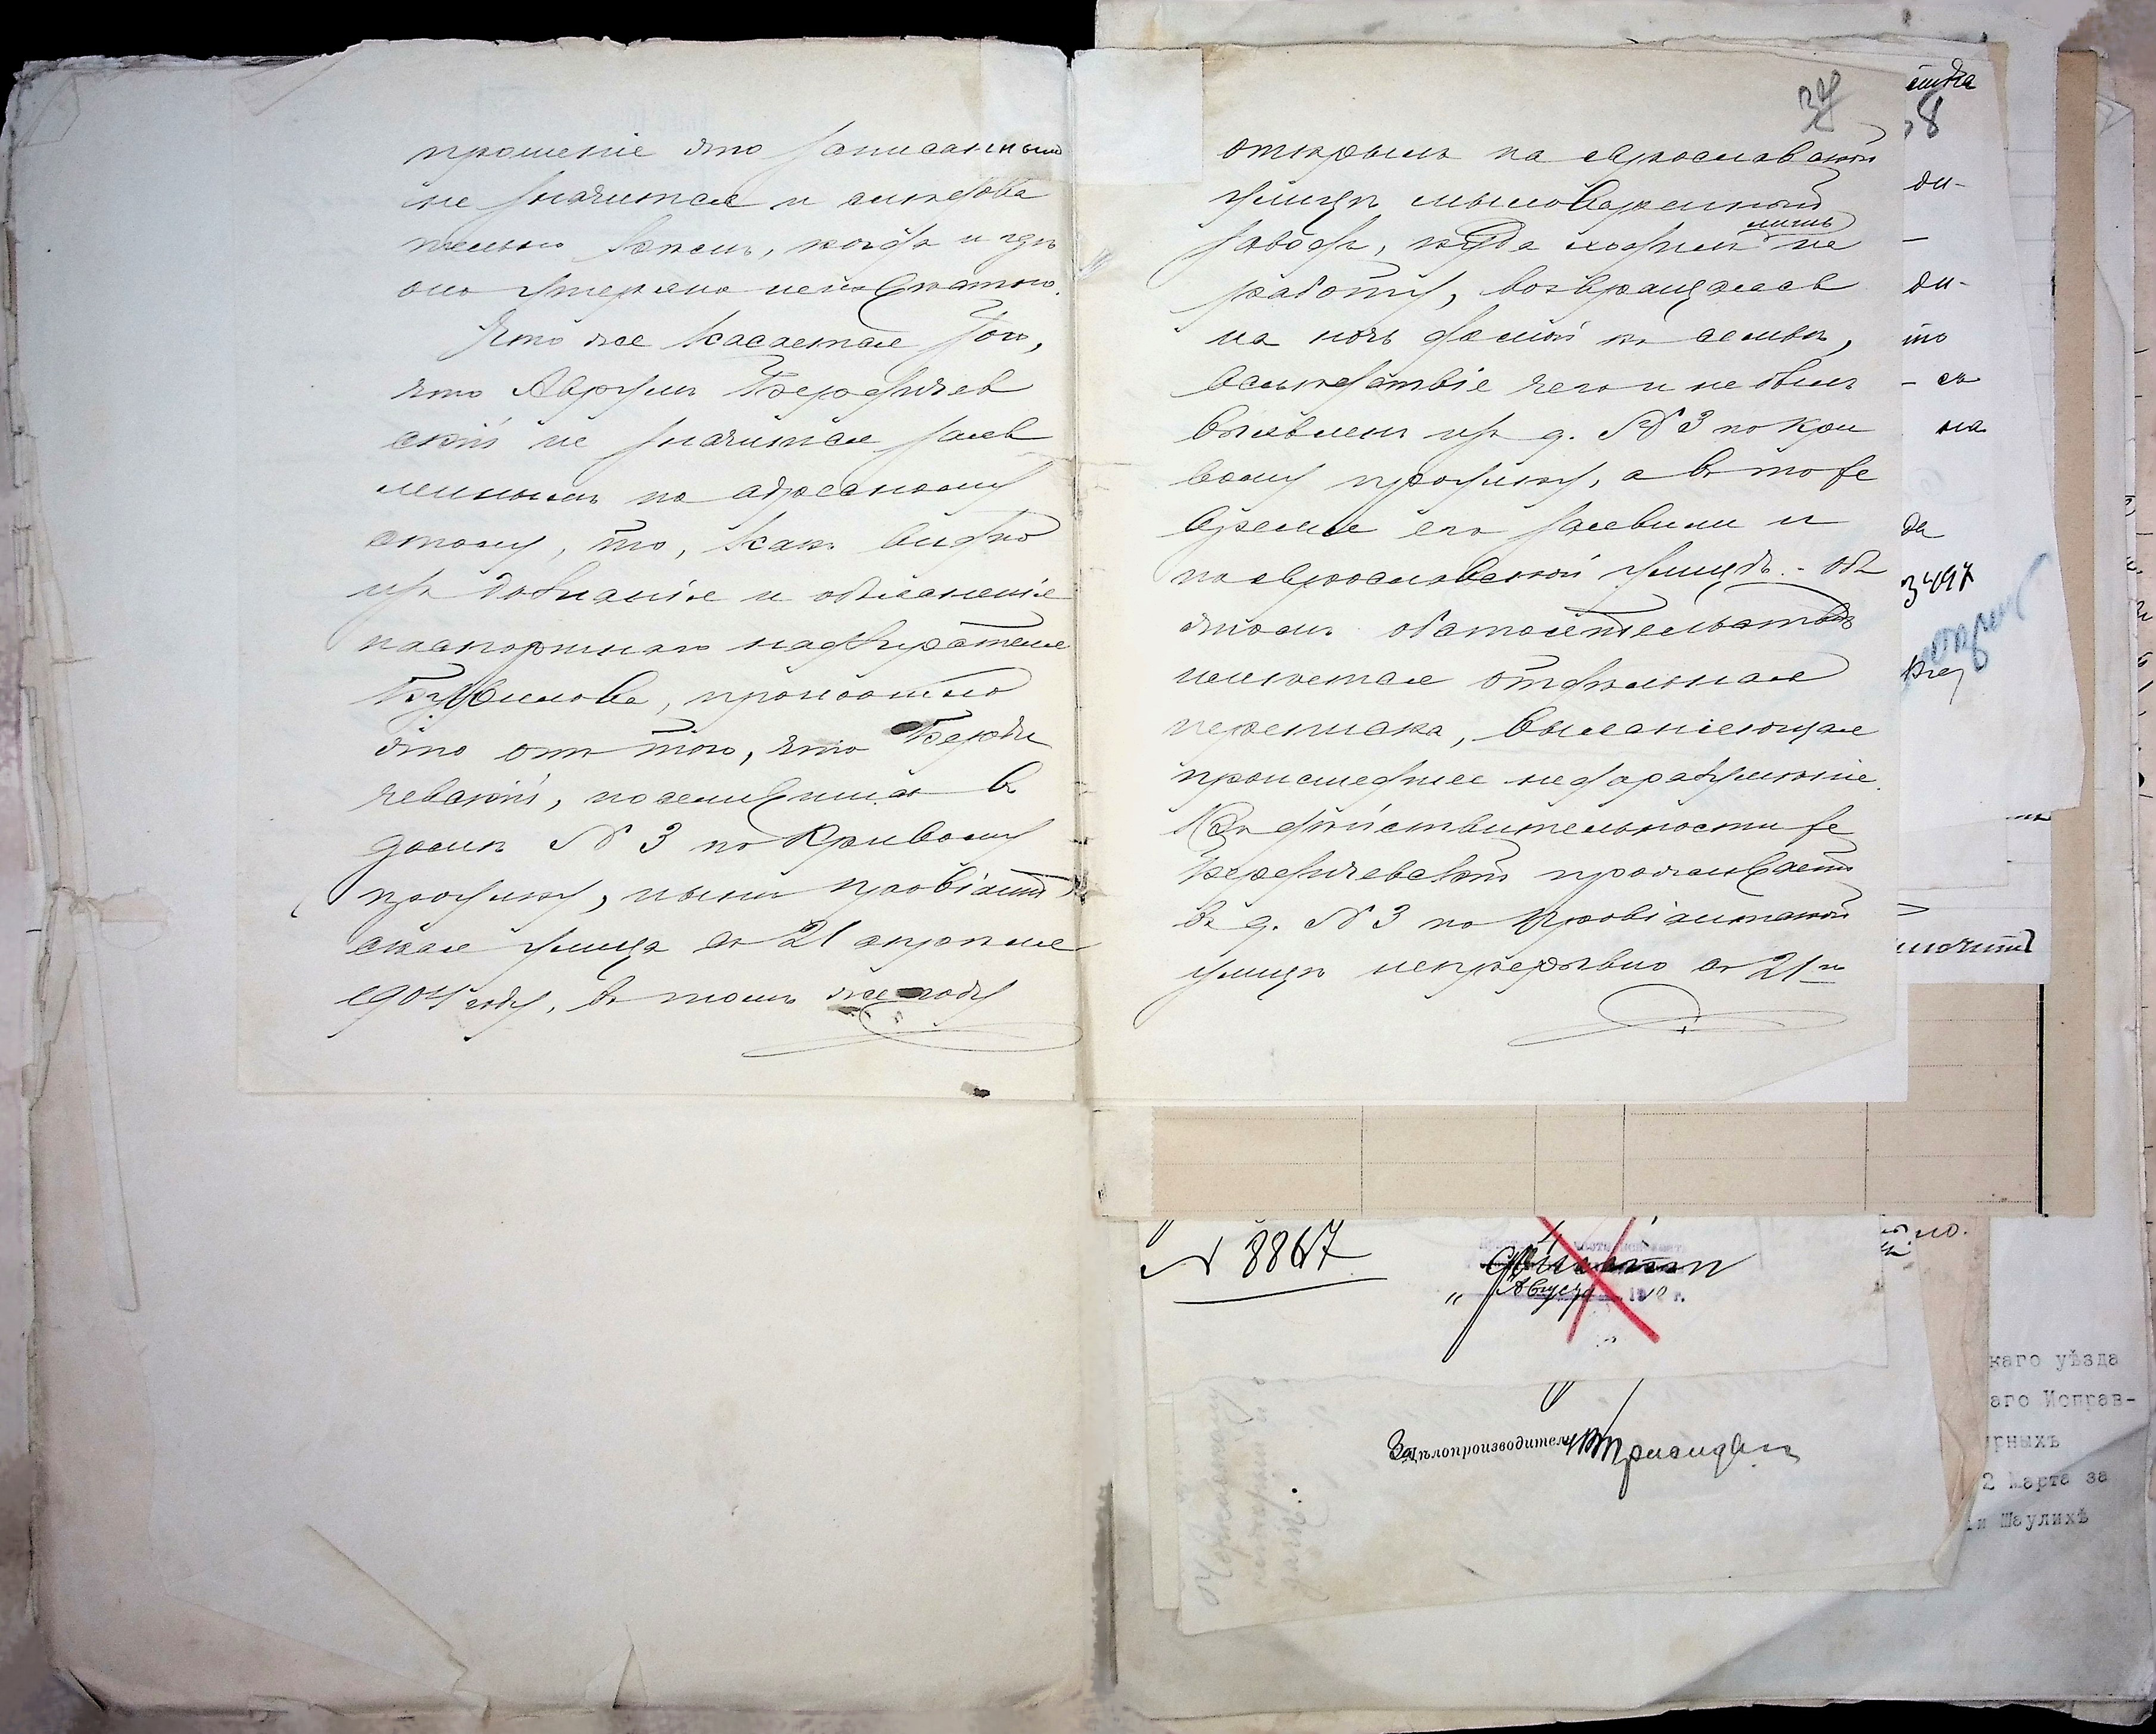 прошеніе это записаннымъ
не значится и слѣдова
тельно кѣмъ, когда и гдѣ
оно утеряно неизвѣстно.
Что же касается того,
что Аврумъ Бердичев
скій не значится заяв
леннымъ по адресному
столу, то, какъ видно
изъ дознанія и объясненія
паспортнаго надзирателя
произошло
это отъ того, что Берди
чевскій, поселившись въ
домѣ № 3 по Кривому
проулку, нынѣ Провіант
ская улица съ 21 апрѣля
1904 году, въ томъ же году
открылъ на Ярославской
улицѣ мыловаренный
заводъ, куда ходилъ лишь на
работу, возвращаясь
на ночь домой къ семьѣ,
вслѣдствіе чего и не былъ
выявленъ изъ д. № 3 по Кри
вому проулку, а въ то же
время его заявили и
по Ярославской улицѣ. - Объ
этомъ обстоятельствѣ
имѣется отдѣльная
переписка, выясняющая
происшедшее недоразумѣніе.
Въ дѣйствительности же
Бердичевскій проживаетъ
въ д. № 3 по Провіантской
улицѣ непрерывно съ 21го
8
ди-
ди-
то
- съ
на
да
3497
№ 8867
Августа
г.
За Дѣлопроизводителя
каго уѣзда
аго Исправ-
рныхъ
2 Марта за
Шаулихѣ